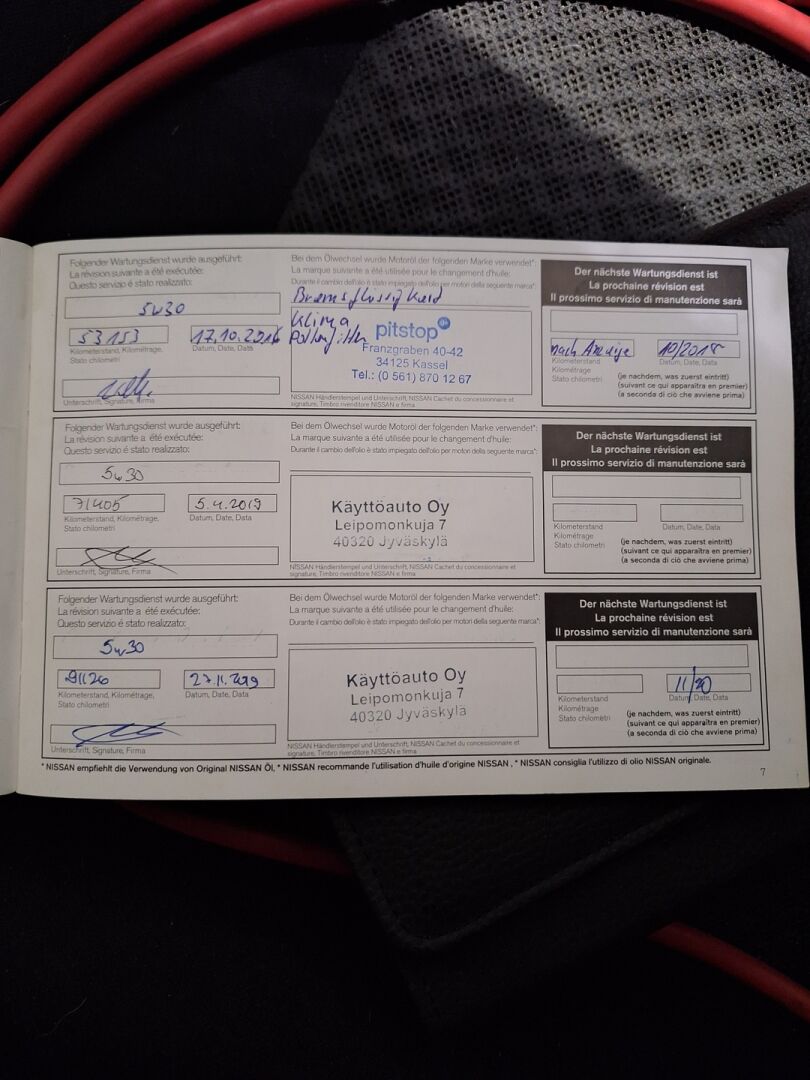 Folgender Wartungsdienst wurde ausgeführt:
La révision suivante a été exécutée:
Questo servizio è stato realizzato:
5w30
53153
17.10.2016
Kilometerstand, Kilométrage,
Stato chilometri
Datum, Date, Data
Unterschrift, Signature, Firma
Bei dem Ölwechsel wurde Motoröl der folgenden Marke verwendet*:
La marque suivante a été utilisée pour le changement d'huile:
Durante il cambio dell'olio è stato impiegato dell'olio per motori della seguente marca*:
Bremsflüssigkeid
Klima
Pollenfilter
pitstop
Franzgraben 40-42
34125 Kassel
Tel.: (0 561) 870 12 67
NISSAN Händlerstempel und Unterschrift, NISSAN Cachet du concessionnaire et
signature, Timbro rivenditore NISSAN e firma
Der nächste Wartungsdienst ist
La prochaine révision est
Il prossimo servizio di manutenzione sarà
nach Anzeige
10/2018
Kilometerstand
Kilométrage
Stato chilometri
Datum, Date, Data
(je nachdem, was zuerst eintritt)
(suivant ce qui apparaîtra en premier)
(a seconda di ciò che avviene prima)
Folgender Wartungsdienst wurde ausgeführt:
La révision suivante a été exécutée:
Questo servizio è stato realizzato:
5w30
71405
5.4.2019
Kilometerstand, Kilométrage,
Stato chilometri
Datum, Date, Data
Unterschrift, Signature, Firma
Bei dem Ölwechsel wurde Motoröl der folgenden Marke verwendet*:
La marque suivante a été utilisée pour le changement d'huile:
Durante il cambio dell'olio è stato impiegato dell'olio per motori della seguente marca*:
Käyttöauto Oy
Leipomonkuja 7
40320 Jyväskylä
NISSAN Händlerstempel und Unterschrift, NISSAN Cachet du concessionnaire et
signature, Timbro rivenditore NISSAN e firma
Der nächste Wartungsdienst ist
La prochaine révision est
Il prossimo servizio di manutenzione sarà
Kilometerstand
Kilométrage
Stato chilometri
Datum, Date, Data
(je nachdem, was zuerst eintritt)
(suivant ce qui apparaîtra en premier)
(a seconda di ciò che avviene prima)
Folgender Wartungsdienst wurde ausgeführt:
La révision suivante a été exécutée:
Questo servizio è stato realizzato:
5w30
91126
27.11.2019
Kilometerstand, Kilométrage,
Stato chilometri
Datum, Date, Data
Unterschrift, Signature, Firma
Bei dem Ölwechsel wurde Motoröl der folgenden Marke verwendet*:
La marque suivante a été utilisée pour le changement d'huile:
Durante il cambio dell'olio è stato impiegato dell'olio per motori della seguente marca*:
Käyttöauto Oy
Leipomonkuja 7
40320 Jyväskylä
NISSAN Händlerstempel und Unterschrift, NISSAN Cachet du concessionnaire et
signature, Timbro rivenditore NISSAN e firma
Der nächste Wartungsdienst ist
La prochaine révision est
Il prossimo servizio di manutenzione sarà
11/20
Kilometerstand
Kilométrage
Stato chilometri
Datum, Date, Data
(je nachdem, was zuerst eintritt)
(suivant ce qui apparaîtra en premier)
(a seconda di ciò che avviene prima)
* NISSAN empfiehlt die Verwendung von Original NISSAN Öl, * NISSAN recommande l'utilisation d'huile d'origine NISSAN , * NISSAN consiglia l'utilizzo di olio NISSAN originale.
7